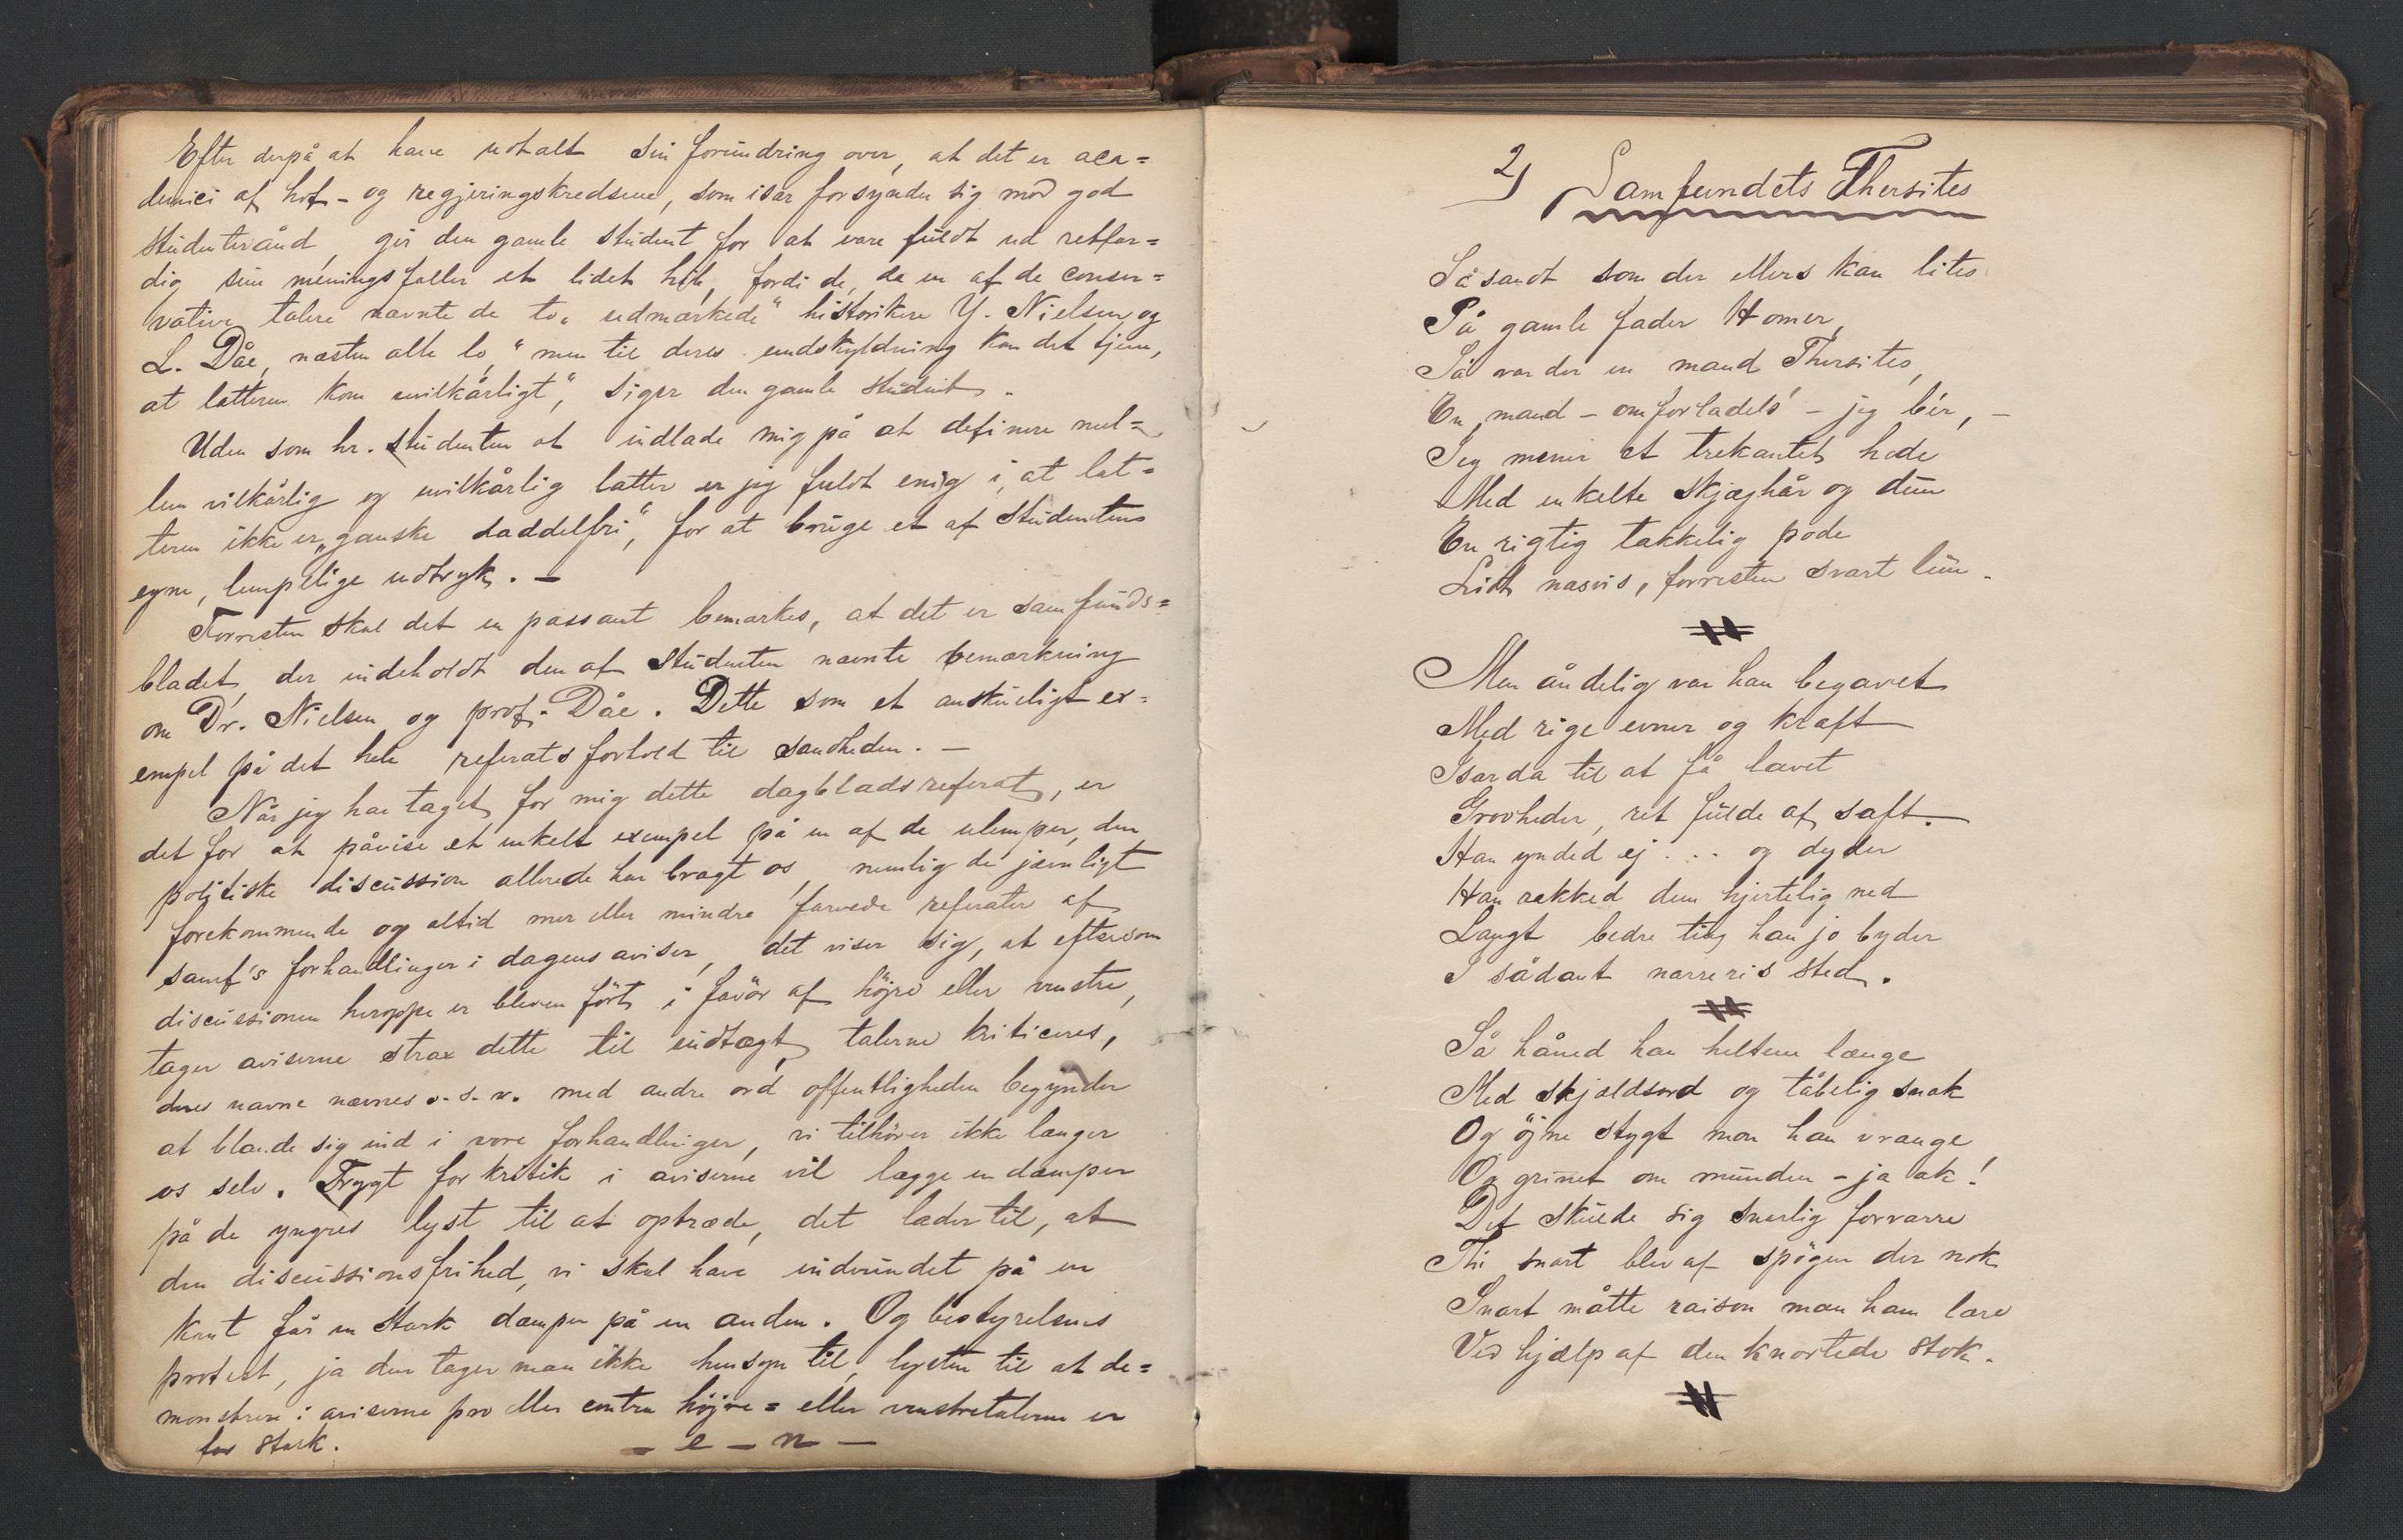 Efter derpå at have udtalt sin forundring over, at det er aca=
demici af hof- og regjeringskredsene, som især forsynder sig mod god
studenterånd, gir den gamle student for at være fuldt ud retfær=
dig sine meningsfæller et lidet hib, fordi de, da en af de conser=
vative talere nævnte de to „udmærkede“ historikere Y. Nielsen og
L. Dåe, næsten alle lo, “men til deres undskyldning kan det tjene,
at latteren kom uvilkårligt“, siger den gamle student.
Uden som hr. studenten at indlade mig på at definere mel=
lem vilkårlig og uvilkårlig latter er jeg fuldt enig i, at lat=
teren ikke er „ganske daddelfri“, for at bruge et af studentens
egne, lempelige udtryk. –
Forresten skal det en passant bemærkes, at det er samfunds=
bladet, der indeholdt den af studenten nævnte bemærkning
om Dr. Nielsen og prof. Dåe. Dette som et anskueligt ex=
empel på det hele referats forhold til sandheden. –
Når jeg har taget for mig dette dagbladsreferat, er
det for at påvise et enkelt exempel på en af de ulemper, den
politiske discussion allerede har bragt os, nemlig de jævnligt
forekommende og altid mer eller mindre farvede referater af
samf's forhandlinger i dagens aviser, det viser sig, at eftersom
discussionen heroppe er bleven ført i favör af höjre eller venstre,
tager aviserne strax dette til indtægt, talerne kriticeres,
deres navne nævnes o. s. v. med andre ord offentligheden begynder
at blande sig ind i vore forhandlinger, vi tilhörer ikke længer
os selv. Frygt for kritik i aviserne vil lægge en dæmper
på de yngres lyst til at optræde, det lader til, at
den discussionsfrihed, vi skal have indvundet på en
kant får en stærk dæmper på en anden. Og bestyrelsens
protest, ja den tager man ikke hensyn til, lysten til at de=
monstrere i aviserne pro eller contra höjre= eller venstretalerne er
for stærk.
– e – n –
2) Samfundets Thersites
Så sandt som der ellers kan lites
På gamle fader Homer,
Så var der en mand Thersites,
En mand – om forladels' – jeg bér, –
Jeg mener et trekantet hode
Med enkelte skjæghår og dun
En rigtig takkelig pode
Lidt næsvis, forresten svart lun.
Men åndelig var han begavet
Med rige evner og kraft
Især da til at få lavet
Grovheder, ret fulde af saft.
Han ynded ej ... og dyder
Han rakked dem hjertelig ned
Langt bedre ting han jo byder
I sådant narreris sted.
Så håned han heltene længe
Med skjældsord og tåbelig snak
Og öjne stygt mon han vrænge
Og grinet om munden – ja ak!
Det skulde sig snarlig forværre
Thi snart blev af spögen der nok
Snart måtte raison man ham lære
Ved hjælp af den knortede stok.